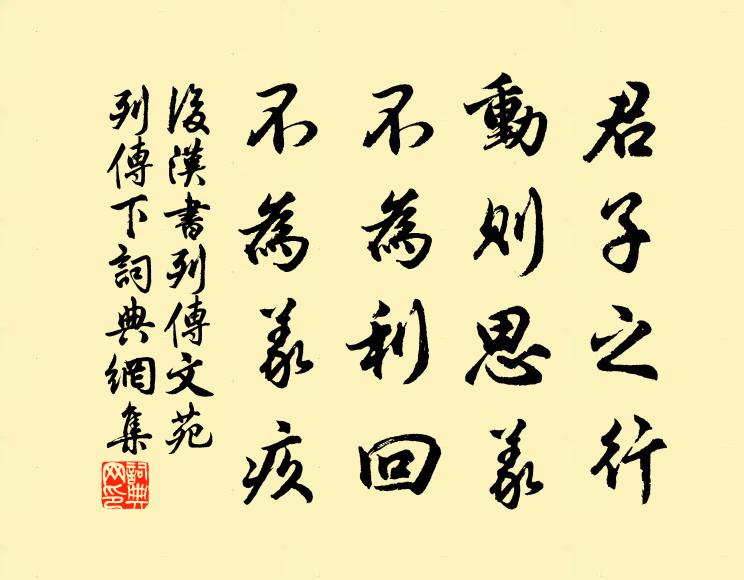 君子之行
動則思義
不為利回
不為義疚
後漢書列傳文苑
列傳下詞典網集
詞典网印